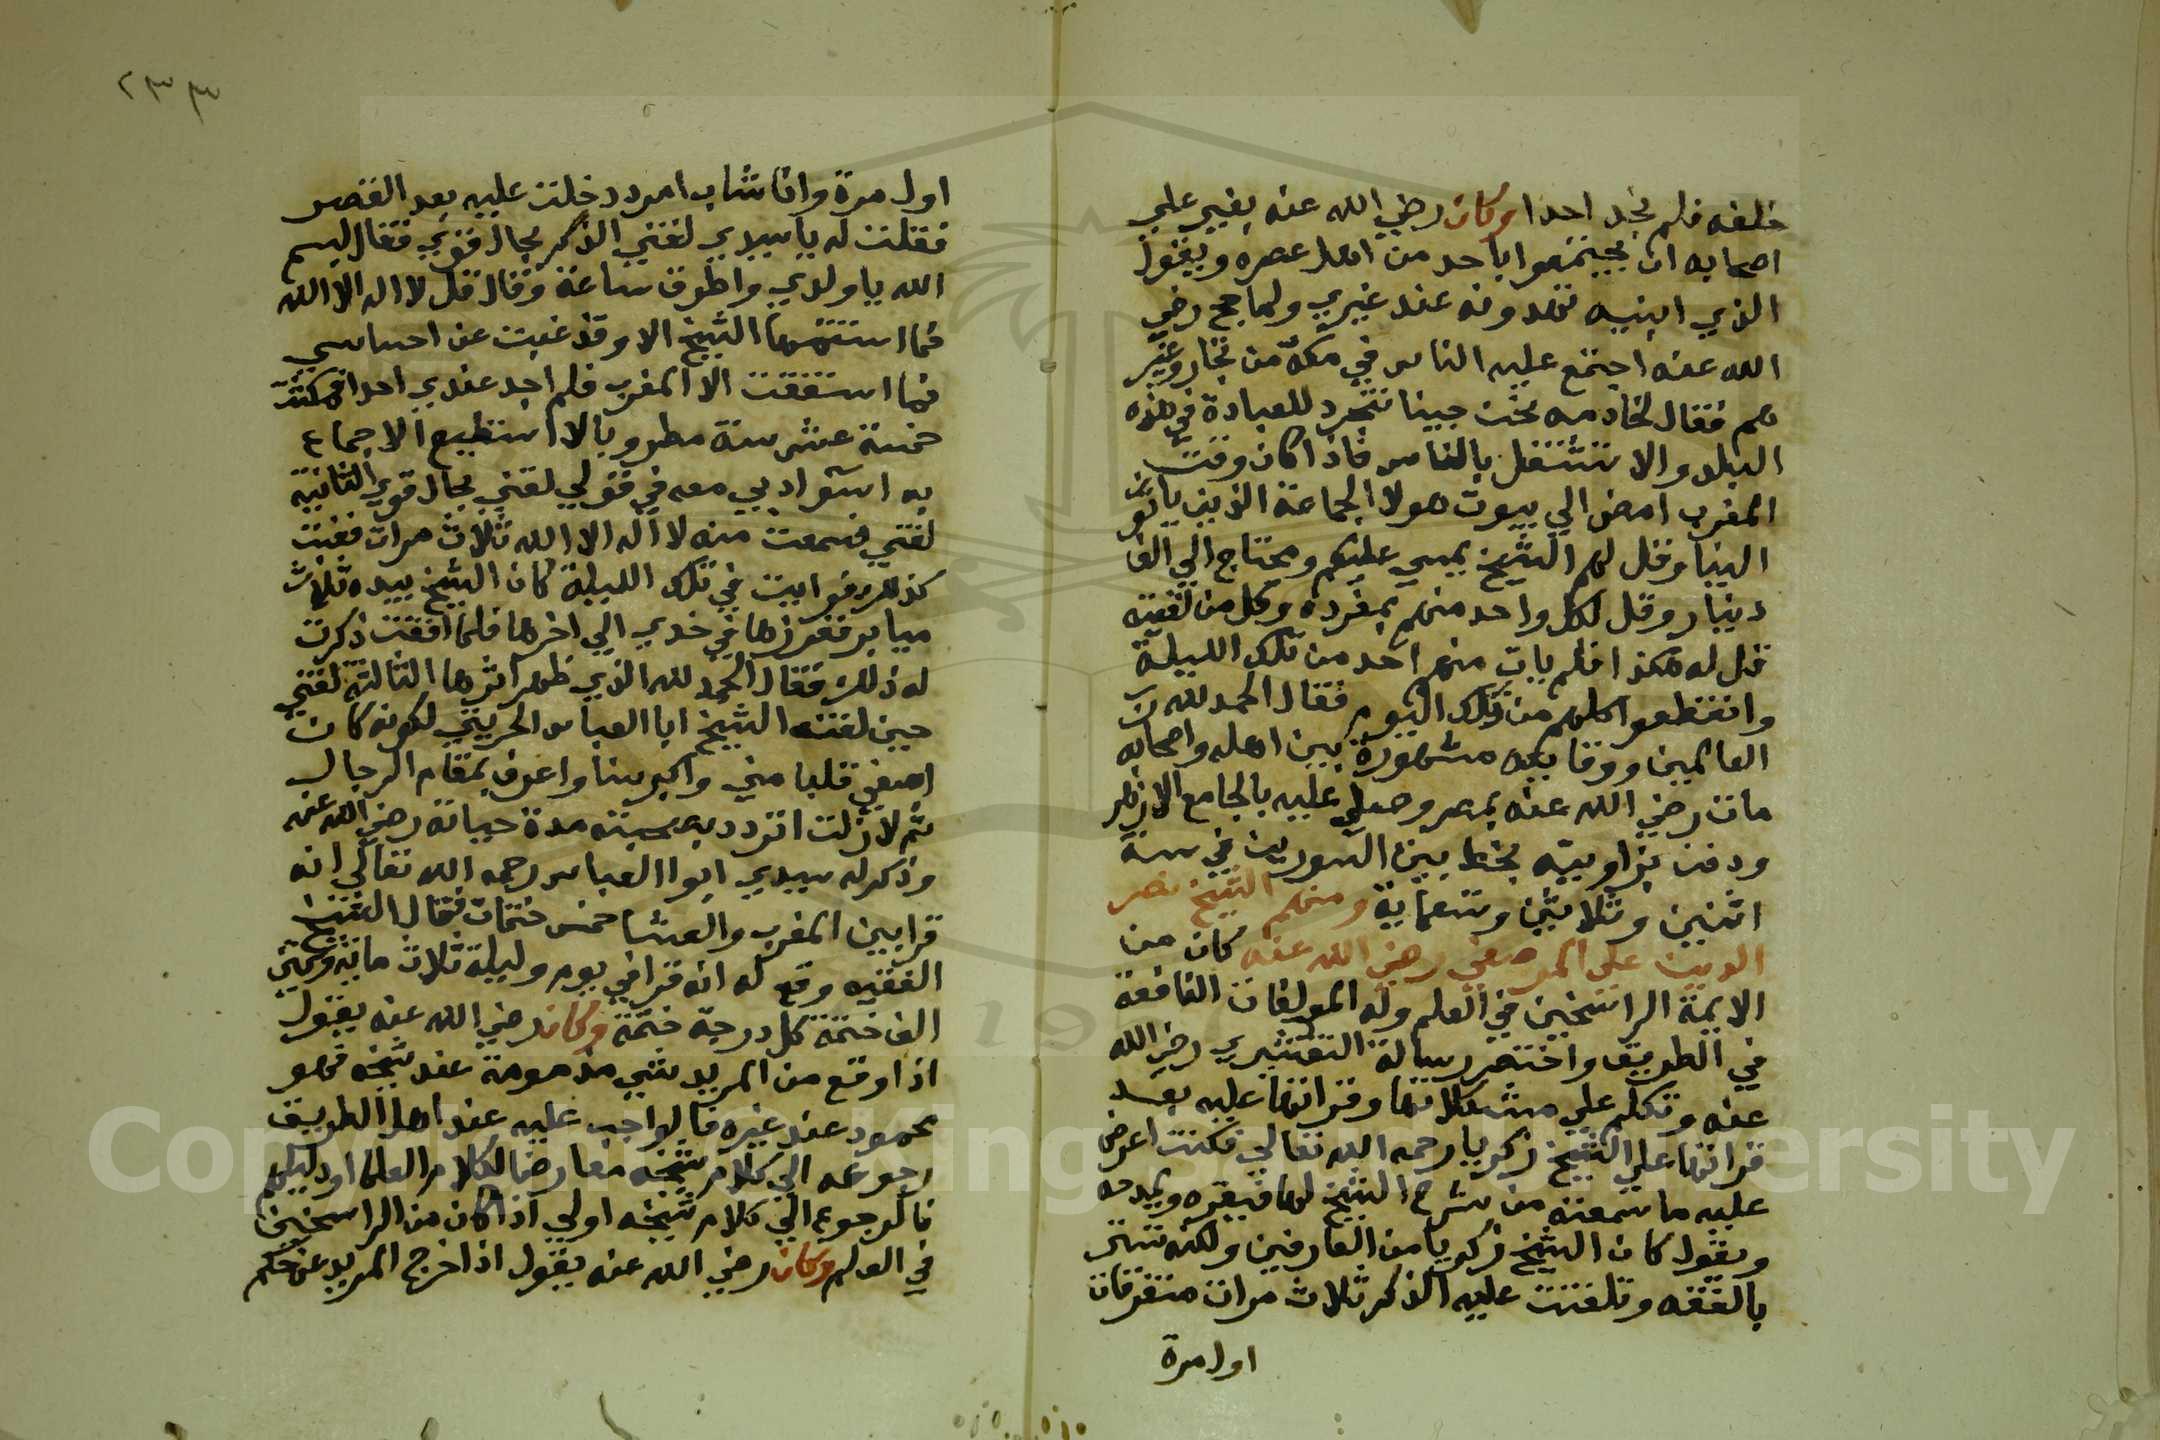 خلفه فلم يجد احدا وكان رضي الله عنه يغير علي
اصحابه ان يجتمعوا باحد من اهل عصره ويقول
الذي ابنيه تهدونه عند غيري ولما حج رضي
الله عنه اجتمع عليه الناس في مكة من تجار وغير
هم فقال لخادمه نحن جينا نتجرد للعبادة في هذه
البلد والا نشتغل بالناس فاذا كان وقت
المغرب امض الي بيوت هولا الجماعة الذين ياتون
الينا وقل لهم الشيخ يمسي عليكم ومحتاج الي الف
دينار وقل لكل واحد منهم بمفرده وكل من لقيته
قل له هكذا فلم يات منهم احد من تلك الليلة
وانقطعوا كلهم من ذلك اليوم فقال الحمد لله رب
العالمين ووقايعه مشهورة بين اهله واصحابه
مات رضي الله عنه بمصر وصلي عليه بالجامع الازهر
ودفن بزاويته بخط بين السورين في سنة
اثنين وثلاثين وتسعماية ومنهم الشيخ نصر
الدين علي المرصفي رضي الله عنه كان من
الايمة الراسخين في العلم وله المولفات النافعة
في الطريق واختصر رسالة القشيري رضي الله
عنه وتكلم علي مشكلاتها وقراتها عليه بعد
قراتها علي الشيخ زكريا رحمه الله تعالي فكنت اعرض
عليه ما سمعته من شرح الشيخ لها فيقره ويمدحه
ويقول كان الشيخ زكريا من العارفين ولكنه تستر
بالفقه وتلقنت عليه الذكر ثلاث مرات متفرقات
اول مرة
٢٣٣
اول مرة وانا شاب امرد دخلت عليه بعد العصر
فقلت له يا سيدي لقني الذكر بحال قوي فقال بسم
الله يا ولدي واطرق ساعة وقال قل لا اله الا الله
فما استتمها الشيخ الا وقد غبت عن احساسي
فما استفقت الا المغرب فلم اجد عندي احدا فمكثت
خمسة عشر سنة مطروبا لا استطيع الاجماع
به اسو ادبي معه في قولي لقني بحال قوي الثانية
لقني فسمعت منه لا اله الا الله ثلاث مرات فغبت
كذلك فرايت في تلك الليلة كان الشيخ بيده ثلاث
ميابر فغرزها في خدي الي اخرها فلما افقت ذكرت
له ذلك فقال الحمد لله الذي ظهر اثرها الثالثة لقني
حين لقنه الشيخ ابا العباس الحريثي لكونه كان
اصفي قلبا مني واكبر سنا واعرف بمقام الرجال
ثم لا زلت اتردد بصحبته مدة حياته رضي الله عنه
وذكر له سيدي ابوا العباس رحمه الله تعالي انه
قرا بين المغرب والعشا خمس ختمات فقال الشيخ
الفقيه وقع له انه قرا في يوم وليلة ثلاث ماية وستين
الف ختمة كل درجة ختمة وكان رضي الله عنه يقول
اذا وقع من المريد شي مذمومة عند شيخه فهو
محمود عند غيره فالواجب عليه عند اهل الطريق
رجوعه الي كلام شيخه معارضا لكلام العلما او دليلهم
فالرجوع الي كلام شيخه اولي اذا كان من الراسخين
في العلم وكان رضي الله عنه يقول اذا خرج المريد عن حكم